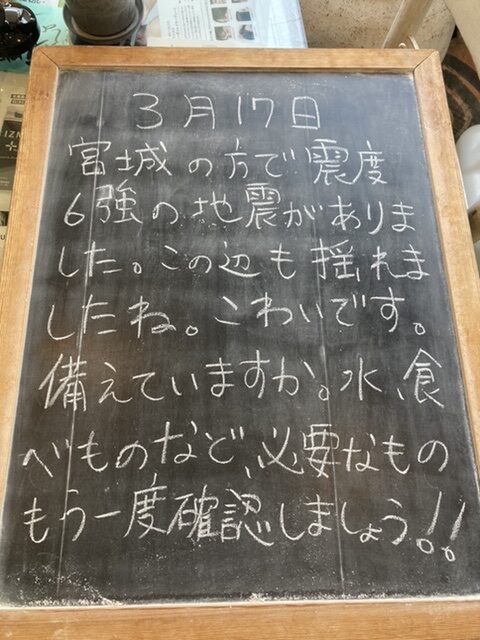 3月17日
宮城の方で震度
6強の地震がありま
した。この辺も揺れま
したね。こわいです。
備えていますか。水、食
べものなど、必要なもの
もう一度確認しましょう!!